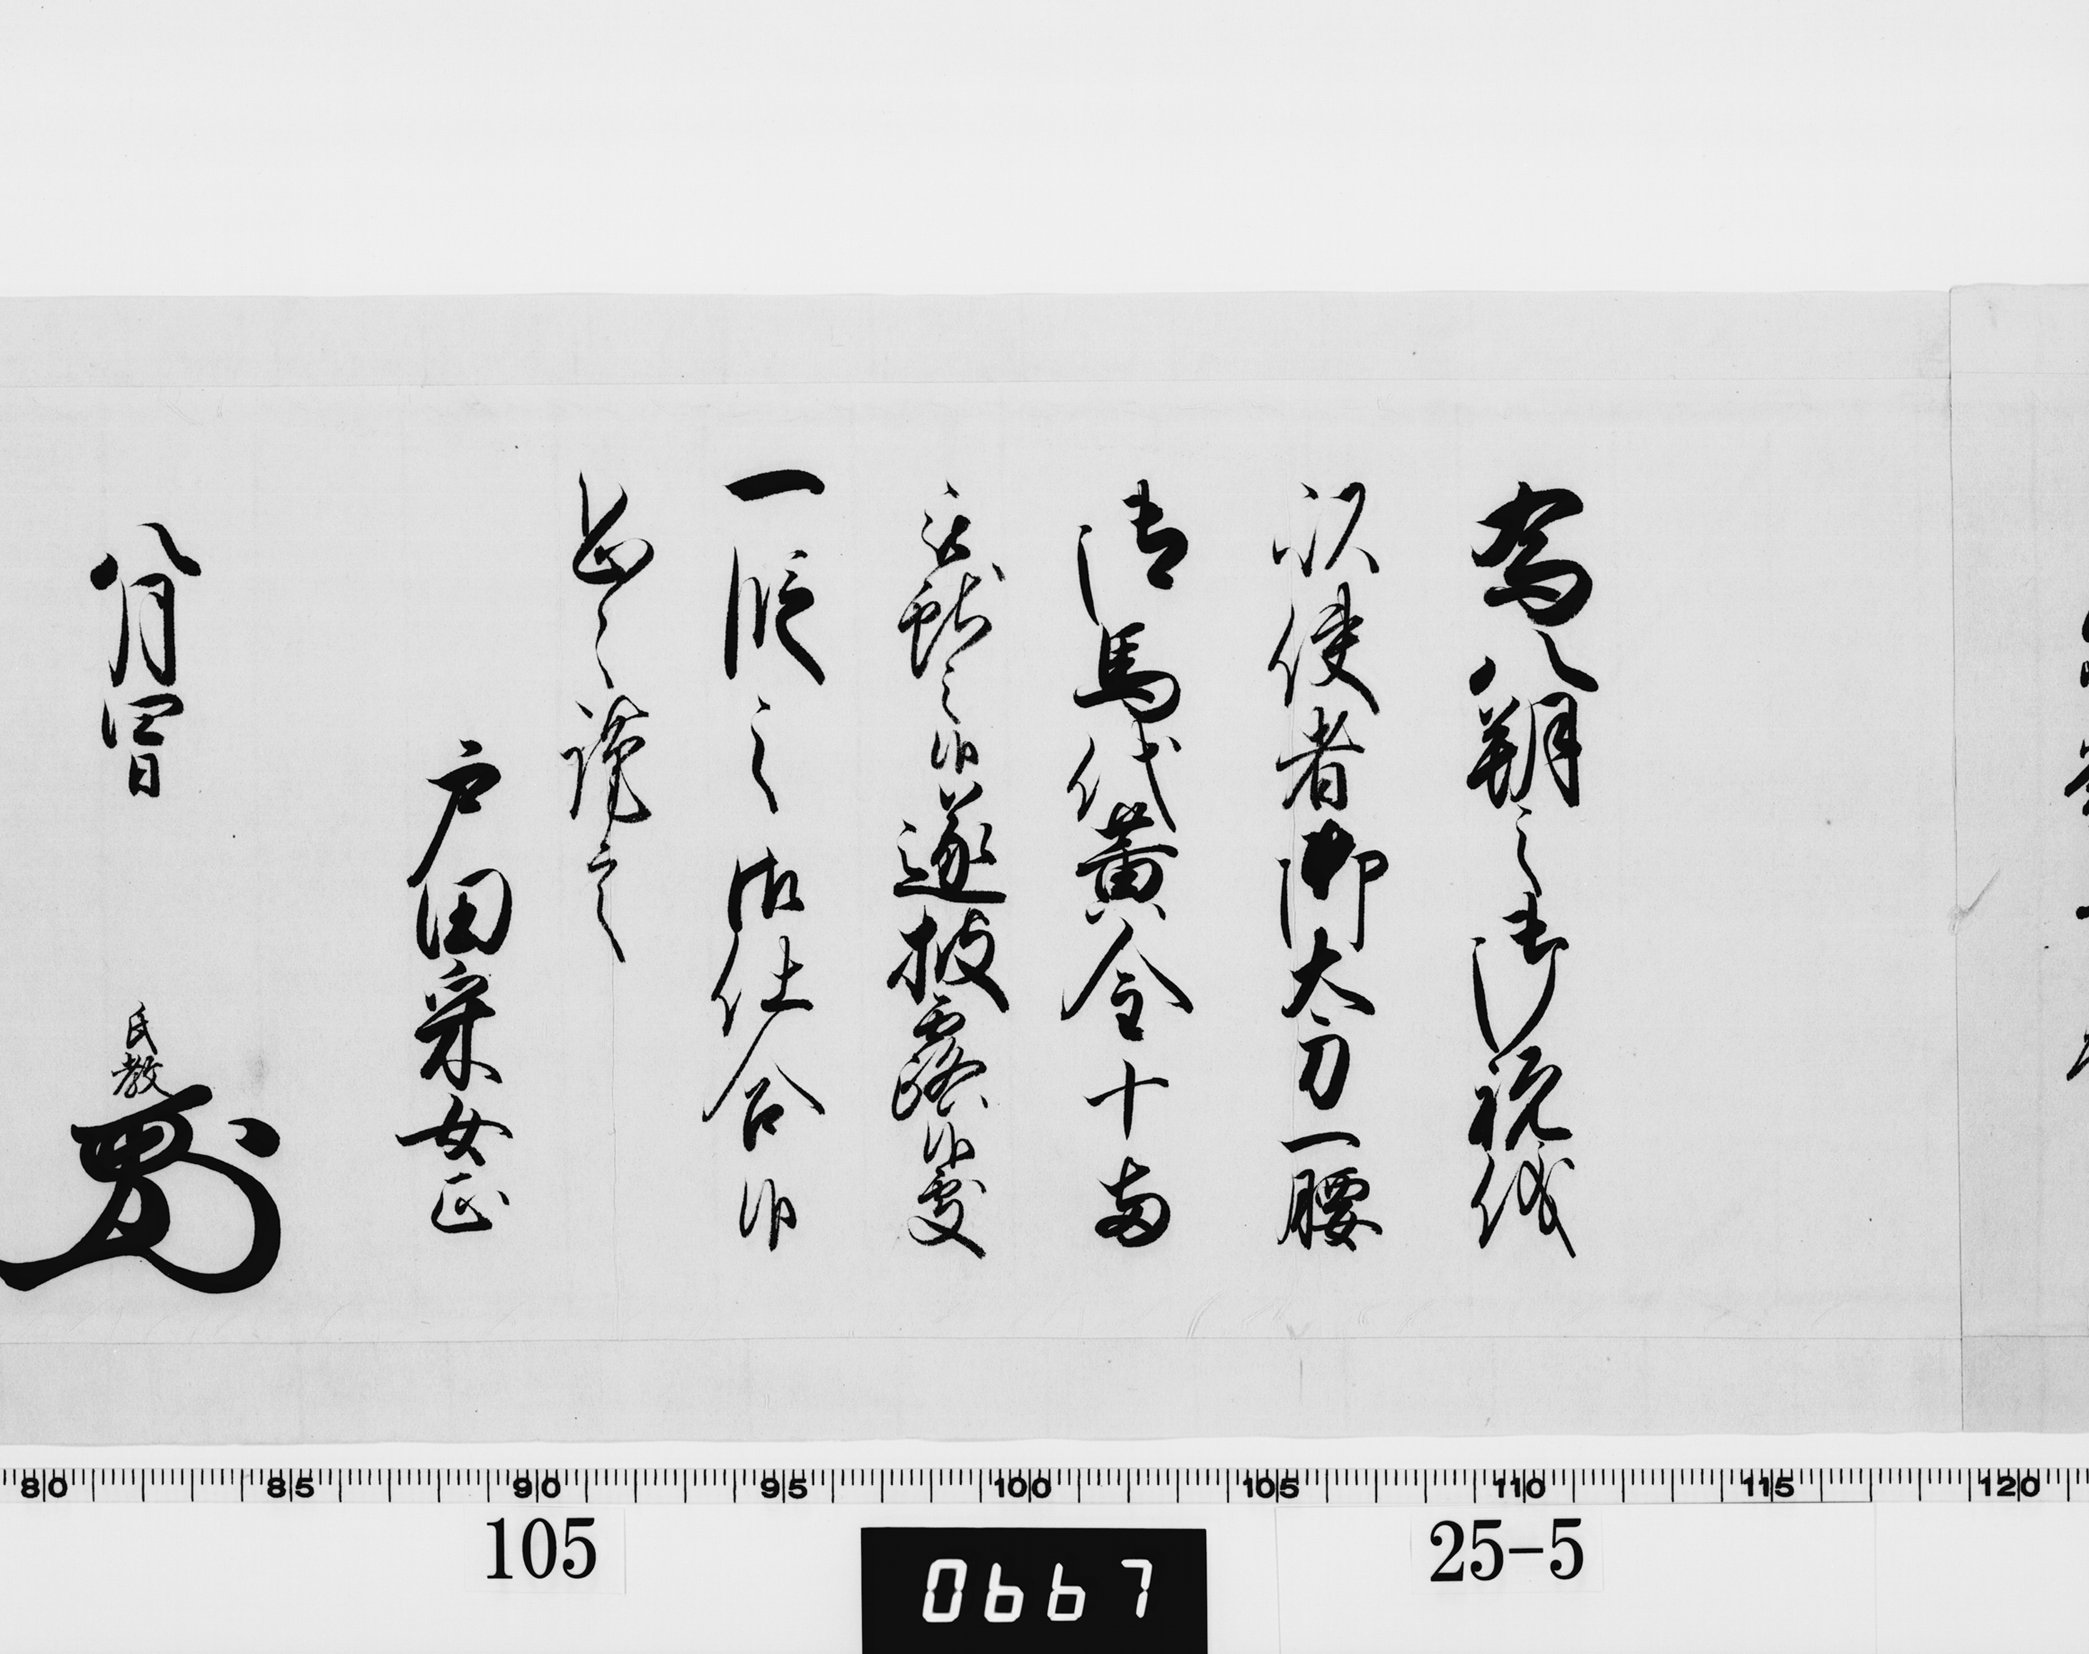 為八朔之御祝儀
以使者御太刀一腰
御馬代黄金十両
被献之候遂披露候處
一段之御仕合候
恐々謹言
戸田采女正
八月四日
氏教
80 85 90 95 100 105 110 115 120
105
0667
25-5